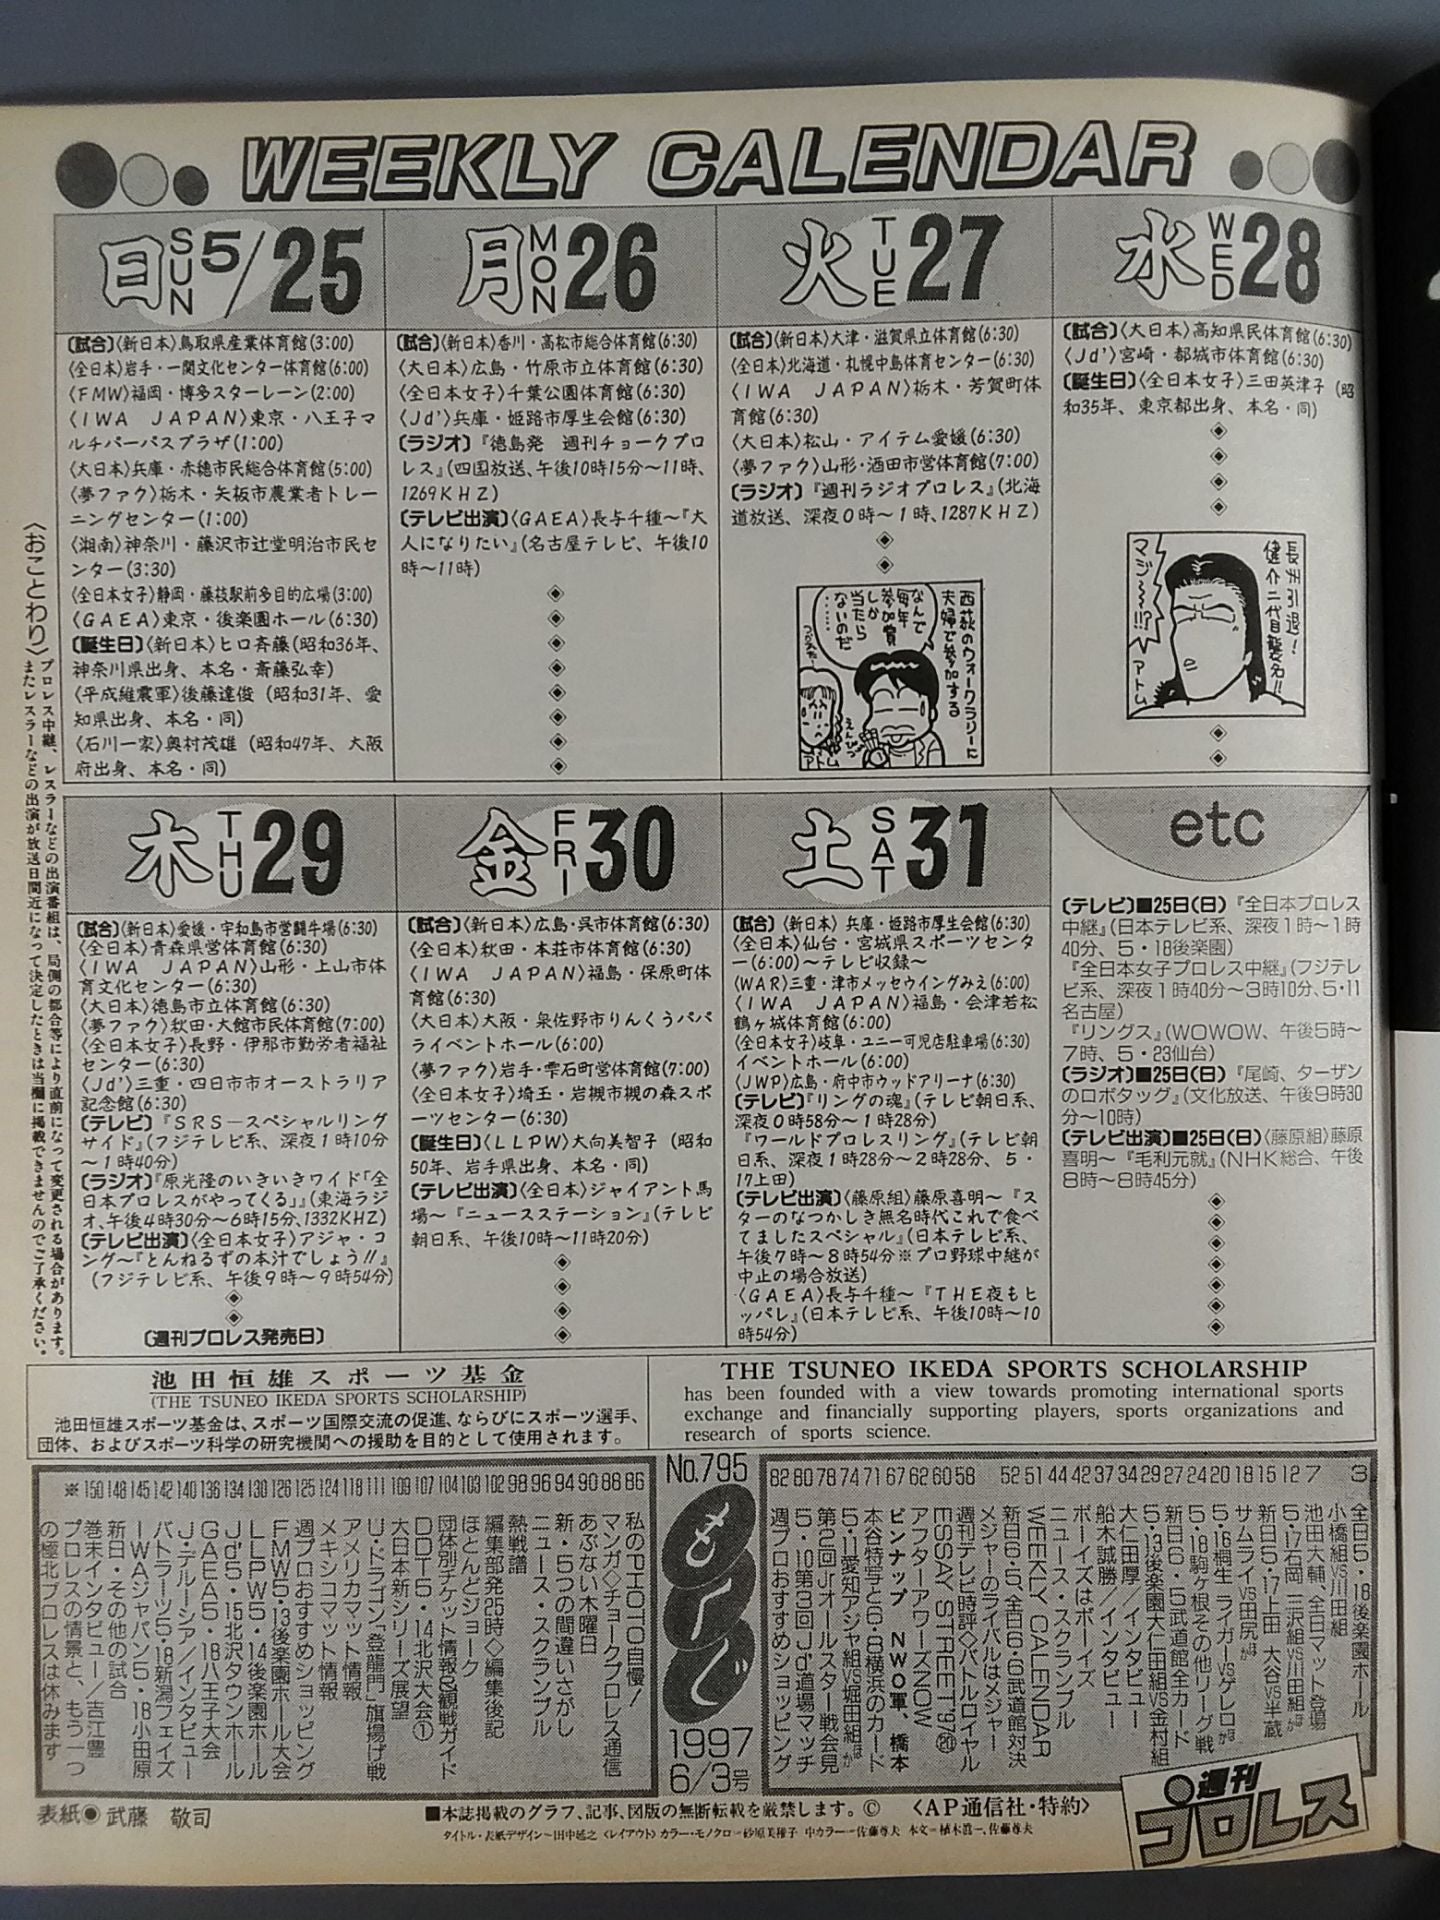 WEEKLY CALENDAR
日 SUN 5/25
〔試合〕〈新日本〉鳥取県産業体育館(3:00)
〈全日本〉岩手・一関文化センター体育館(6:00)
〈FMW〉福岡・博多スターレーン(2:00)
〈IWA JAPAN〉東京・八王子マ
ルチパーパスプラザ(1:00)
〈大日本〉兵庫・赤穂市民総合体育館(5:00)
〈夢ファク〉栃木・矢板市農業者トレー
ニングセンター(1:00)
〈湘南〉神奈川・藤沢市辻堂明治市民セ
ンター(3:30)
〈全日本女子〉静岡・藤枝駅前多目的広場(3:00)
〈GAEA〉東京・後楽園ホール(6:30)
〔誕生日〕〈新日本〉ヒロ斉藤(昭和36年、
神奈川県出身、本名・斎藤弘幸)
〈平成維震軍〉後藤達俊(昭和31年、愛
知県出身、本名・同)
〈石川一家〉奥村茂雄(昭和47年、大阪
府出身、本名・同)
月 MON 26
〔試合〕〈新日本〉香川・高松市総合体育館(6:30)
〈大日本〉広島・竹原市立体育館(6:30)
〈全日本女子〉千葉公園体育館(6:30)
〈Jd'〉兵庫・姫路市厚生会館(6:30)
〔ラジオ〕『徳島発 週刊チョークプロ
レス』(四国放送、午後10時15分〜11時、
1269KHZ)
〔テレビ出演〕〈GAEA〉長与千種〜『大
人になりたい』(名古屋テレビ、午後10
時〜11時)
火 TUE 27
〔試合〕〈新日本〉大津・滋賀県立体育館(6:30)
〈全日本〉北海道・札幌中島体育センター(6:30)
〈IWA JAPAN〉栃木・芳賀町体
育館(6:30)
〈大日本〉松山・アイテム愛媛(6:30)
〈夢ファク〉山形・酒田市営体育館(7:00)
〔ラジオ〕『週刊ラジオプロレス』(北海
道放送、深夜0時〜1時、1287KHZ)
西荻のウォークラリーに
夫婦で参加する
なんで
毎年
参加賞
しか
当たら
ないのだ
……
アトム
水 WED 28
〔試合〕〈大日本〉高知県民体育館(6:30)
〈Jd'〉宮崎・都城市体育館(6:30)
〔誕生日〕〈全日本女子〉三田英津子(昭
和35年、東京都出身、本名・同)
長州引退！
健介二代目襲名!!
マジ〜〜!!?
アトム
木 THU 29
〔試合〕〈新日本〉愛媛・宇和島市営闘牛場(6:30)
〈全日本〉青森県営体育館(6:30)
〈IWA JAPAN〉山形・上山市体
育文化センター(6:30)
〈大日本〉徳島市立体育館(6:30)
〈夢ファク〉秋田・大館市民体育館(7:00)
〈全日本女子〉長野・伊那市勤労者福祉
センター(6:30)
〈Jd'〉三重・四日市市オーストラリア
記念館(6:30)
〔テレビ〕『SRS—スペシャルリング
サイド』(フジテレビ系、深夜1時10分
〜1時40分)
〔ラジオ〕『原光隆のいきいきワイド「全
日本プロレスがやってくる」』(東海ラジ
オ、午後4時30分〜6時15分、1332KHZ)
〔テレビ出演〕〈全日本女子〉アジャ・コ
ング〜『とんねるずの本汁でしょう!!』
(フジテレビ系、午後9時〜9時54分)
〔週刊プロレス発売日〕
金 FRI 30
〔試合〕〈新日本〉広島・呉市体育館(6:30)
〈全日本〉秋田・本荘市体育館(6:30)
〈IWA JAPAN〉福島・保原町体
育館(6:30)
〈大日本〉大阪・泉佐野市りんくうパパ
ライベントホール(6:00)
〈夢ファク〉岩手・雫石町営体育館(7:00)
〈全日本女子〉埼玉・岩槻市槻の森スポ
ーツセンター(6:30)
〔誕生日〕〈LLPW〉大向美智子(昭和
50年、岩手県出身、本名・同)
〔テレビ出演〕〈全日本〉ジャイアント馬
場〜『ニュースステーション』(テレビ
朝日系、午後10時〜11時20分)
土 SAT 31
〔試合〕〈新日本〉兵庫・姫路市厚生会館(6:30)
〈全日本〉仙台・宮城県スポーツセンタ
ー(6:00)〜テレビ収録〜
〈WAR〉三重・津市メッセウイングみえ(6:00)
〈IWA JAPAN〉福島・会津若松
鶴ヶ城体育館(6:00)
〈全日本女子〉岐阜・ユニー可児店駐車場(6:30)
イベントホール(6:00)
〈JWP〉広島・府中市ウッドアリーナ(6:30)
〔テレビ〕『リングの魂』(テレビ朝日系、
深夜0時58分〜1時28分)
『ワールドプロレスリング』(テレビ朝
日系、深夜1時28分〜2時28分、5・
17上田)
〔テレビ出演〕〈藤原組〉藤原喜明〜『ス
ターのなつかしき無名時代これで食べ
てましたスペシャル』(日本テレビ系、
午後7時〜8時54分※プロ野球中継が
中止の場合放送)
〈GAEA〉長与千種〜『THE夜もヒ
ッパレ』(日本テレビ系、午後10時〜10
時54分)
etc
〔テレビ〕■25日(日)『全日本プロレス
中継』(日本テレビ系、深夜1時〜1時
40分、5・18後楽園)
『全日本女子プロレス中継』(フジテレ
ビ系、深夜1時40分〜3時10分、5・11
名古屋)
『リングス』(WOWOW、午後5時〜
7時、5・23仙台)
〔ラジオ〕■25日(日)『尾崎、ターザン
のロボタッグ』(文化放送、午後9時30
分〜10時)
〔テレビ出演〕■25日(日)〈藤原組〉藤原
喜明〜『毛利元就』(NHK総合、午後
8時〜8時45分)
〈おことわり〉
プロレス中継、レスラーなどの出演番組は、局側の都合等により直前になって変更される場合があります。
またレスラーなどの出演が放送日間近になって決定したときは当欄に掲載できませんのでご了承ください。
池田恒雄スポーツ基金
(THE TSUNEO IKEDA SPORTS SCHOLARSHIP)
池田恒雄スポーツ基金は、スポーツ国際交流の促進、ならびにスポーツ選手、
団体、およびスポーツ科学の研究機関への援助を目的として使用されます。
THE TSUNEO IKEDA SPORTS SCHOLARSHIP
has been founded with a view towards promoting international sports
exchange and financially supporting players, sports organizations and
research of sports science.
No.795
もくじ
1997
6/3号
3 全日5・18後楽園ホール
小橋組VS川田組
7 池田大輔、全日マット登場
12 5・17石岡 三沢組VS川田組ほか
15 新日5・17上田 大谷VS半蔵
18 サムライVS田尻ほか
20 5・16桐生 ライガーVSゲレロほか
24 5・18駒ヶ根その他リーグ戦
27 新日6・5武道館全カード
29 5・13後楽園大仁田組VS金村組
34 大仁田厚／インタビュー
37 船木誠勝／インタビュー
42 ニュース・スクランブル
44 ボーイズはボーイズ
51 WEEKLY CALENDAR
52 新日6・5、全日6・6武道館対決
メジャーのライバルはメジャー
58 週刊テレビ時評◇バトルロイヤル
60 ESSAY STREET'97
62 アフターアワーズNOW
67 ピンナップ NWO軍、橋本
71 本谷特写と6・8横浜のカード
74 5・11愛知アジャ組VS堀田組ほか
78 第2回Jrオールスター戦会見
80 5・10第3回Jd'道場マッチ
82 週プロおすすめショッピング
86 私のPHOTO自慢！
88 マンガ◇チョークプロレス通信
90 あぶない木曜日
94 新・5つの間違いさがし
96 ニュース・スクランブル
98 熱戦譜
102 編集部発25時◇編集後記
103 ほとんどジョーク
104 団体別チケット情報&観戦ガイド
107 DDT5・14北沢大会①
109 大日本新シリーズ展望
111 U・ドラゴン「登龍門」旗揚げ戦
118 アメリカマット情報
124 メキシコマット情報
125 週プロおすすめショッピング
126 FMW5・13後楽園ホール大会
130 LLPW5・14後楽園ホール
134 Jd'5・15北沢タウンホール
136 GAEA5・18八王子大会
140 J・デルーシア／インタビュー
142 バトラーツ5・18新潟フェイズ
145 IWAジャパン5・18小田原
148 新日・その他の試合
150 巻末インタビュー／吉江豊
※プロレスの情景と、もう一つ
の極北プロレスは休みます
表紙◉武藤 敬司
■本誌掲載のグラフ、記事、図版の無断転載を厳禁します。© 〈AP通信社・特約〉
週刊プロレス